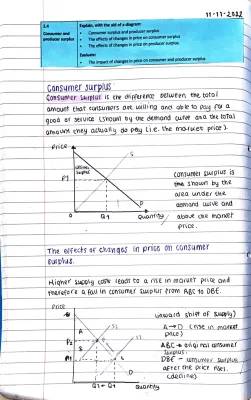 11-11-2022
2.4
Consumer and
producer surplus
Explain, with the aid of a diagram:
• Consumer surplus and producer surplus
• The effects of changes in price on consumer surplus
• The effects of changes in price on producer surplus.
Evaluate:
• The impact of changes in price on consumer and producer surplus
Consumer surplus
Consumer surplus is the difference between the total
amount that consumers are willing and able to pay for a
good or service (shown by the demand curve and the total
amount they actually do pay (i.e. the market price).
Price
S
surplus
P1
D
0
Q1
Quantity
consumer surplus is
shown by the
area under the
demand curve and
above the market
price.
The effects of changes in price on consumer
surplus.
Higher supply costs leads to a rise in market price and
therefore a fall in consumer surplus from ABC to DBE.
Price
P2
P1
A
B
D
Q1
Quantity
(inward shift of supply)
(rise in market
price)
ABC → original consumer
surplus.
DBE - consumer surplus
after the price rises.
(decline)